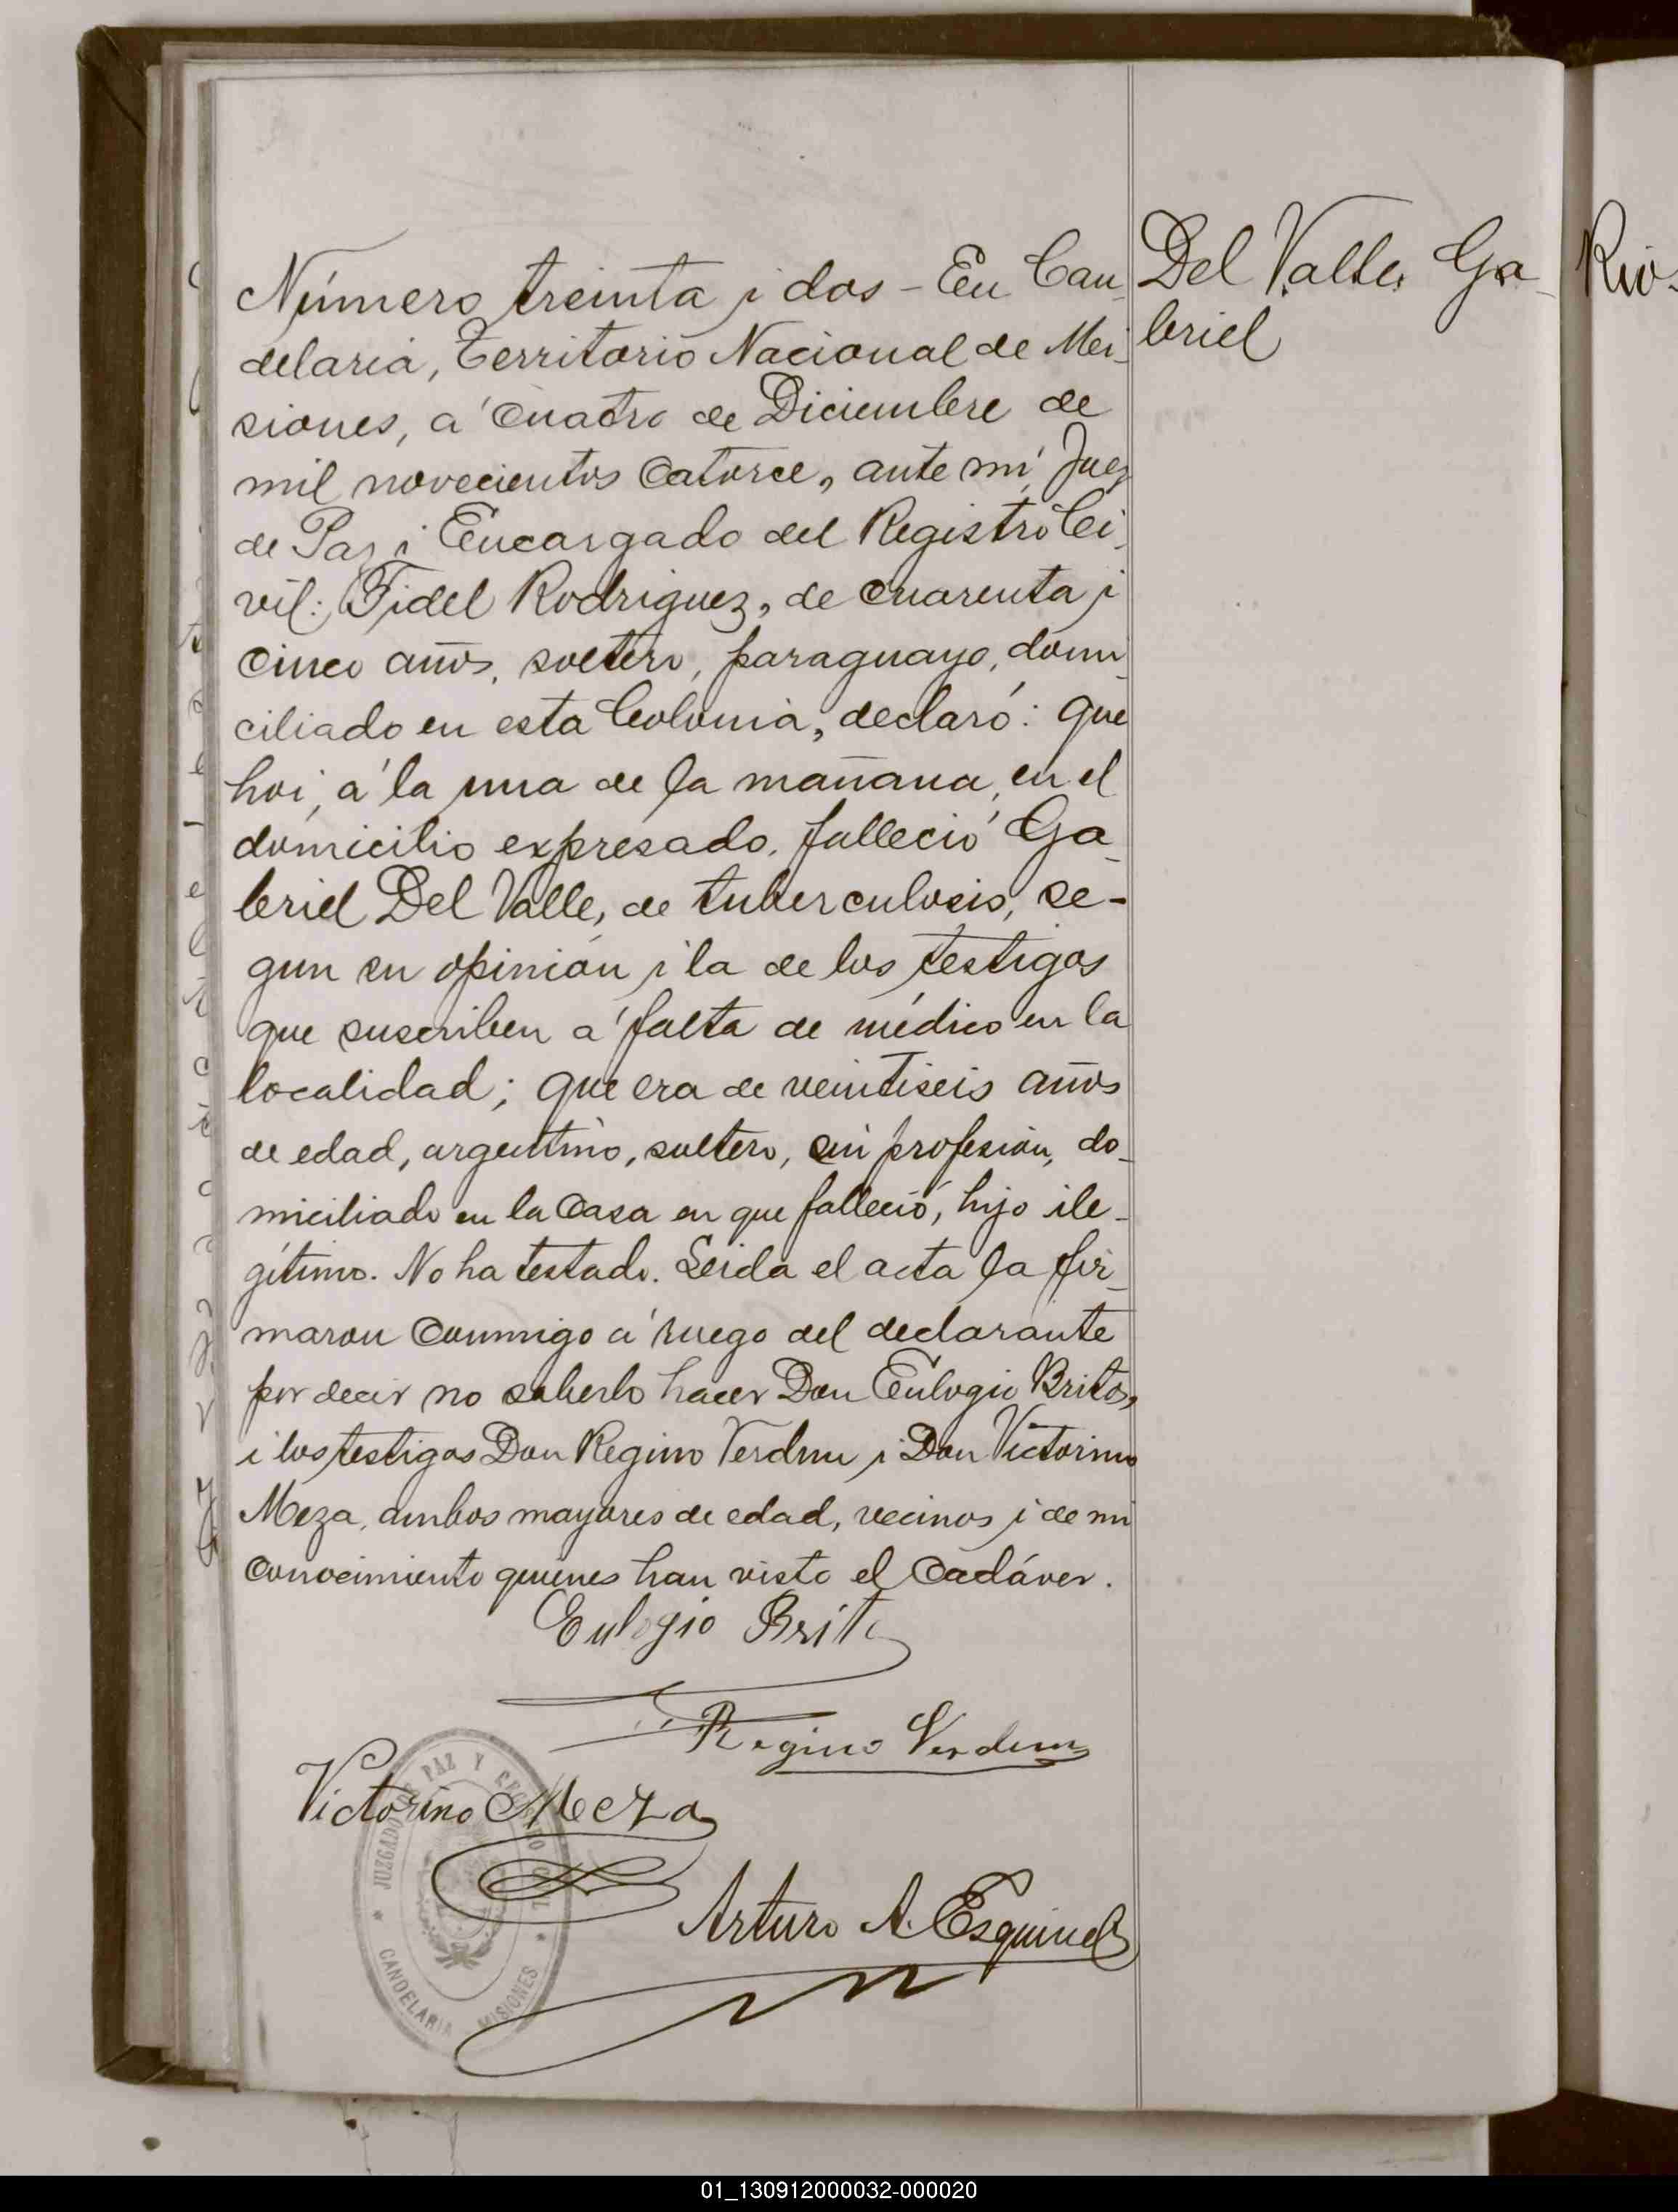 Número treinta i dos - En Can
delaria, Territorio Nacional de Mi-
siones, á cuatro de Diciembre de
mil novecientos catorce, ante mí, Juez
de Paz i Encargado del Registro Ci-
vil: Fidel Rodriguez, de cuarenta i
cinco años, soltero, paraguayo, domi-
ciliado en esta Colonia, declaró: que
hoi, á la una de la mañana, en el
domicilio expresado, falleció Ga-
briel Del Valle, de tuberculosis, se-
gun su opinión i la de los testigos
que suscriben á falta de médico en la
localidad; que era de veintiseis años
de edad, argentino, soltero, sin profesión, do-
miciliado en la casa en que falleció, hijo ile-
gítimo. No ha testado. Leida el acta la fir-
maron conmigo á ruego del declarante
por decir no saberlo hacer Don Eulogio Brito,
i los testigos Don Regino Verdun i Don Victorino
Meza, ambos mayores de edad, vecinos i de mi
conocimiento quienes han visto el cadáver.
Eulogio Brito
Regino Verdun
Victorino Meza
Arturo A. Esquivel
Del Valle, Ga-
briel
Rio
JUZGADO DE PAZ Y REGISTRO CIVIL
CANDELARIA MISIONES
01_130912000032-000020